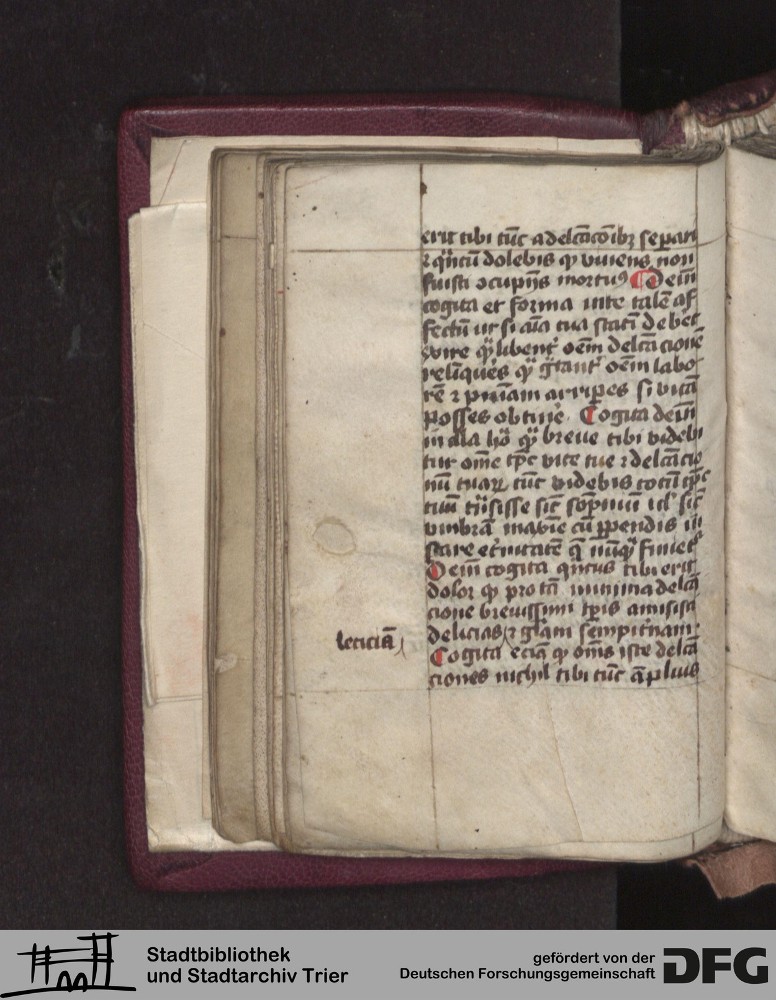 erit tibi tūc a delcācōibꝫ separi
⁊ q̄ntū dolebis qꝫ viuens non
fuisti ocupaꝯs mortuꝯ Deīn
cogita et forma inte talē af
fectū ut si aīa tua statī debet
exire q̄ libent᷑ oēm delcācionē
relīqueēs q̄ gͣtant᷑ oēm labo
rē ⁊ pn̄iam arriꝑes si vitā
posses obtinē᷑ Cogita deīn
in illa ho᷑ q̄ breue tibi videbi
tur om̄e tp̄c vite tue ⁊ delcācio
nū tuaꝝ tūc videbis totū tp̄c
tuū trīsisse sic̄ sōpnium ul᷑ sic̄
vmbrā inanē cū ꝑpendis in
stare et᷑nitatē q̄ nūq̄ finiet᷑
Deīn cogita qn̄tus tibi erit
dolor qꝫ pro tā minima delcā
cione breuissimi tp̄is amisisti
delicias ⁊ gl̄am sempit᷑nam
leticiā
Cogita eciā qꝫ om̄s iste delcā
ciones nichil tibi tūc āplius
Stadtbibliothek
und Stadtarchiv Trier
gefördert von der
Deutschen Forschungsgemeinschaft
DFG